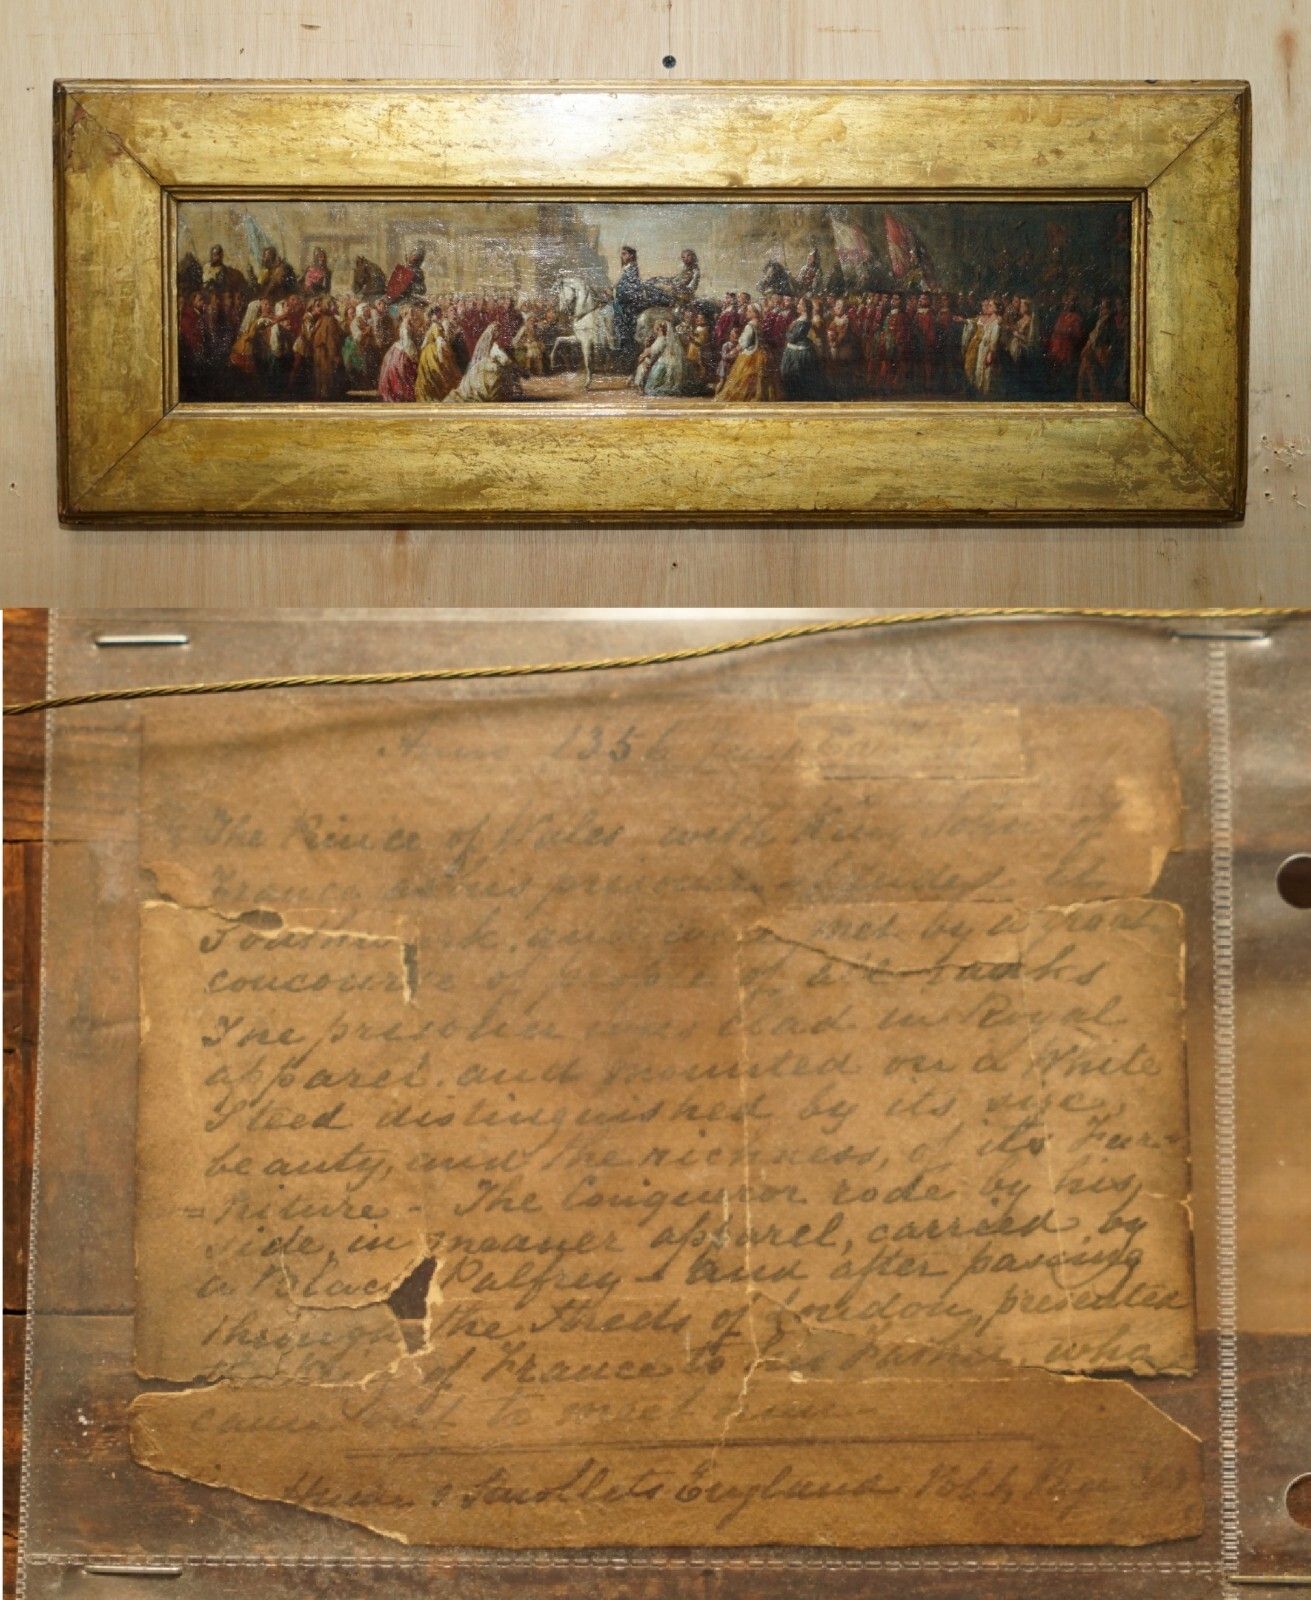 Anno 1356
The Prince of Wales with King John of
France as his prisoner
Southwark, and was met by a great
concourse of people of all ranks
The prisoner was clad in Royal
apparel, and mounted on a White
Steed distinguished by its size,
beauty, and the richness, of its Fur-
=niture - The Conqueror rode by his
side, in meaner apparel, carried by
a Black Palfrey - and after passing
through the Streets of London, presented
the King of France to his Father, who
came to meet him -
England